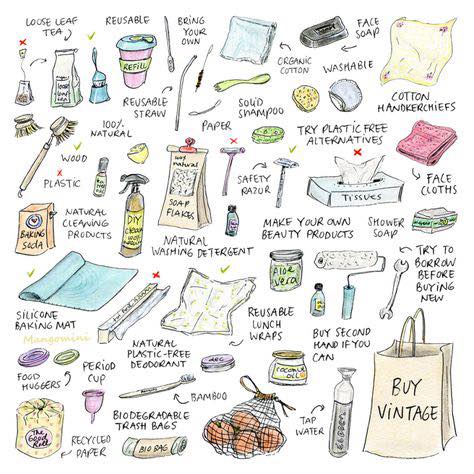 LOOSE LEAF
TEA
loose
leaf
tea
REUSABLE
REFILL
BRING
YOUR
OWN
ORGANIC
COTTON
FACE
SOAP
WASHABLE
COTTON
HANDKERCHIEFS
REUSABLE
STRAW
SOLID
SHAMPOO
100%
NATURAL
PAPER
TRY PLASTIC FREE
ALTERNATIVES
WOOD
PLASTIC
100%
natural
SOAP
FLAKES
SAFETY
RAZOR
TISSUES
FACE
CLOTHS
BAKING
SODA
NATURAL
CLEANING
PRODUCTS
DIY
NATURAL
WASHING DETERGENT
MAKE YOUR OWN
BEAUTY PRODUCTS
SHOWER
SOAP
TRY TO
BORROW
BEFORE
BUYING
NEW
Aloe
vera
SILICONE
BAKING MAT
Mangomini
REUSABLE
LUNCH
WRAPS
BUY SECOND
HAND IF YOU
CAN
NATURAL
PLASTIC-FREE
DEODORANT
FOOD
HUGGERS
PERIOD
CUP
BAMBOO
COCONUT
OIL
BUY
VINTAGE
BIODEGRADABLE
TRASH BAGS
TAP
WATER
The
Good
Roll
RECYCLED
PAPER
BIO BAG